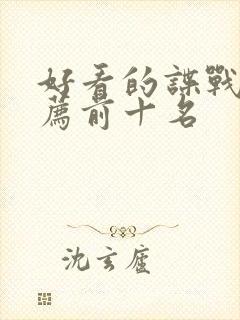 好看的諜戰
薦前十名
沈玄廬